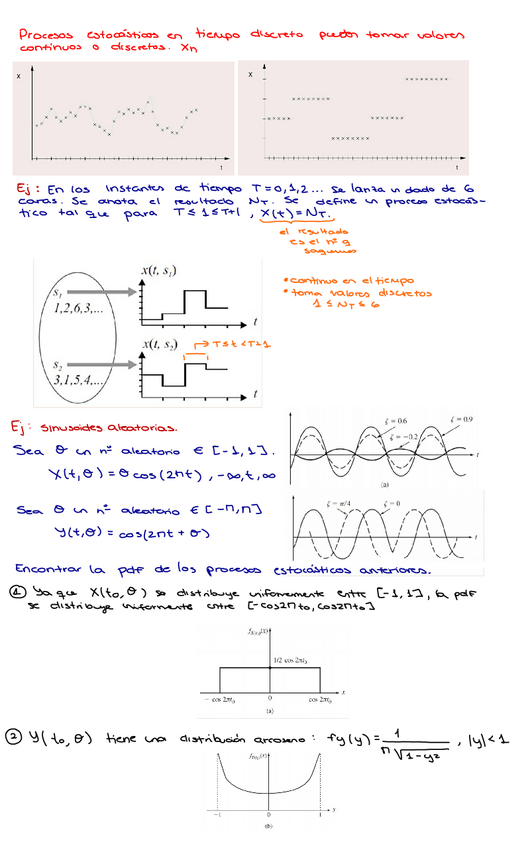 Procesos estocásticos en tiempo discreto pueden tomar valores
continuos o discretos. Xn
X
t
X
t
Ej: En los instantes de tiempo T=0,1,2... se lanza un dado de 6
caras. Se anota el resultado NT. Se define un proceso estocás-
tico tal que para T≤1≤T+1, X(t)=NT.
el resultado
es el nº q
saquemos
x(t, s₁)
s₁
1,2,6,3,...
t
x(t, s₂)
→ T≤t<T+1
s₂
3,1,5,4,...
t
• continuo en el tiempo
• toma valores discretos
1 ≤ NT ≤ 6
Ej: sinusoides aleatorias.
Sea θ un nº aleatorio ∈ [-1,1].
X(t,θ) = θ cos(2πt), -∞,t,∞
ζ = 0.6
ζ = 0.9
ζ = -0.2
t
(a)
Sea θ un nº aleatorio ∈ [-π,π]
Y(t,θ) = cos(2πt + θ)
ζ = π/4
ζ = 0
t
Encontrar la pdf de los procesos estocásticos anteriores.
① Ya que X(t0,θ) se distribuye uniformemente entre [-1,1], la pdf
se distribuye uniformemente entre [-cos2πt0, cos2πt0]
fX(t0)(x)
1/2 cos 2πt0
- cos 2πt0
0
cos 2πt0
x
(a)
② Y(t0,θ) tiene una distribución arcoseno: fy(y) = 1/(π√(1-y²)), |y|<1
fY(t0)(x)
-1
0
1
y
(b)